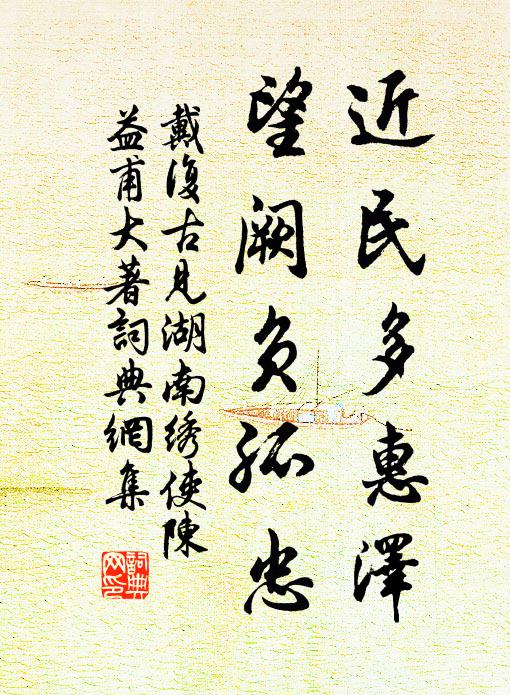 近民多惠澤
望闕負孤忠
戴復古見湖南綉使陳
益甫大著詞典網集
詞典
网印